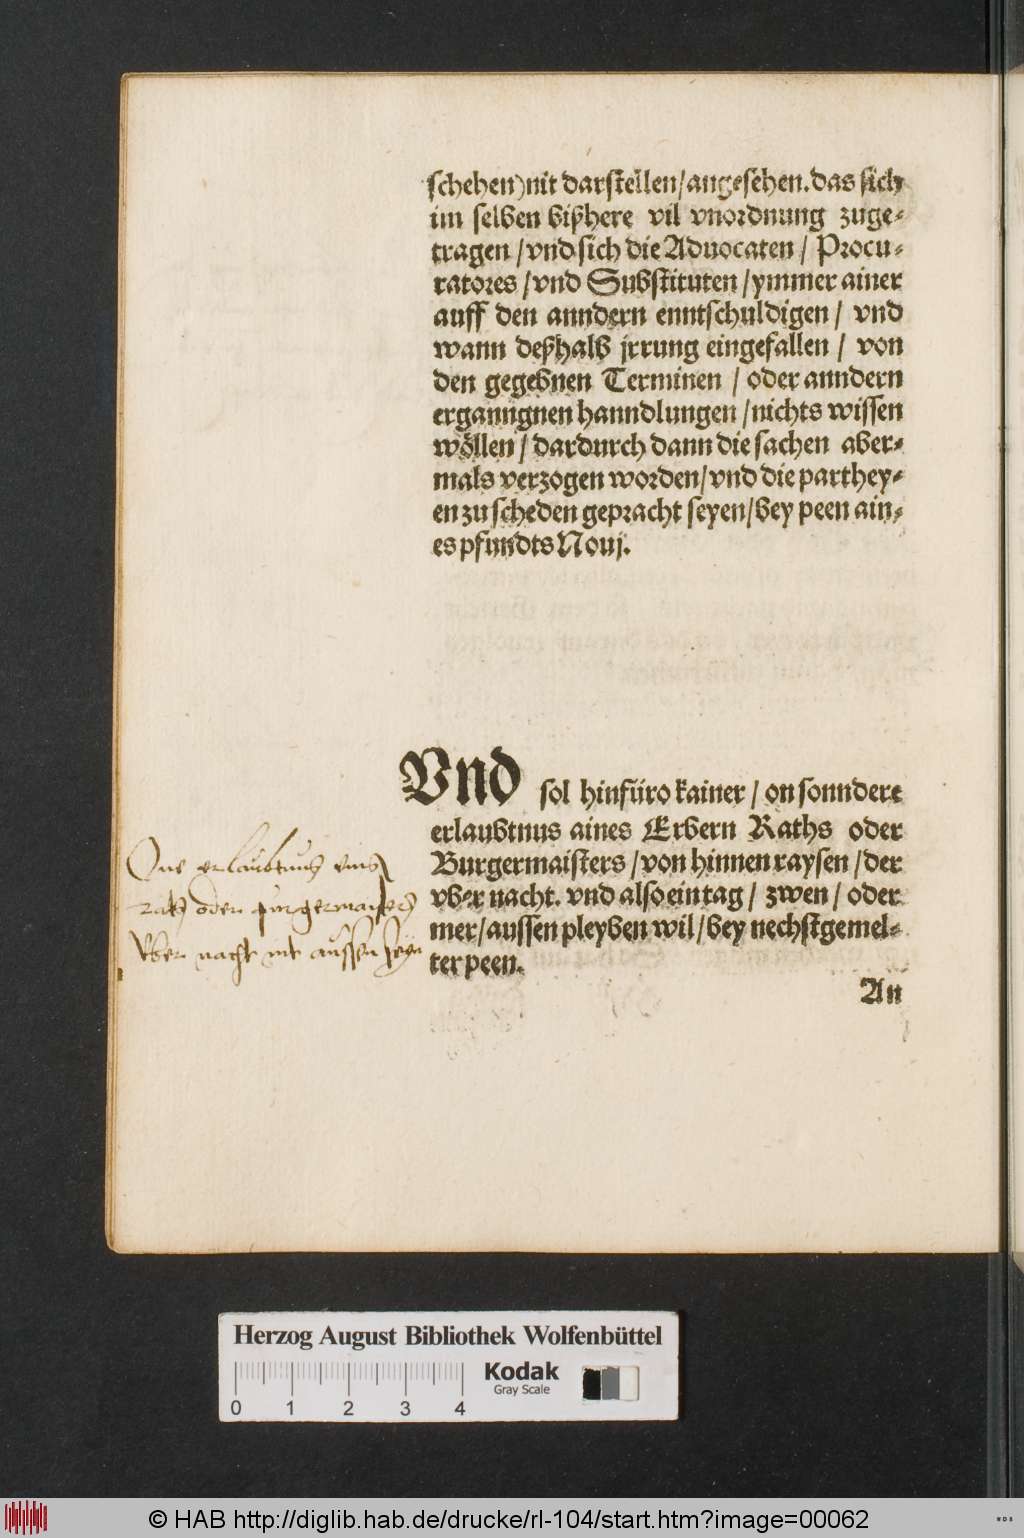 schehen) nit darstellen / angesehen. das sich
im selben bißhere vil vnordnung zuge-
tragen / vnd sich die Aduocaten / Procu-
ratores / vnd Substituten / ymmer ainer
auff den anndern enntschuldigen / vnd
wann deßhalb jrrung eingefallen / von
den gegebnen Terminen / oder anndern
erganngnen hanndlungen / nichts wissen
wöllen / dardurch dann die sachen aber-
mals verzogen worden / vnd die parthey-
en zu scheden gepracht seyen / bey peen ain-
es pfundts Nouj.
Vnd sol hinfüro kainer / on sonndere
erlaubtnus aines Erbern Raths oder
Burgermaisters / von hinnen raysen / der
vber nacht. vnd also ein tag / zwen / oder
mer / aussen pleyben wil / bey nechstgemel-
ter peen.
One erlaubtnus eins
rats oder purgermaisters
vber nacht nit aussen seyn
An
Herzog August Bibliothek Wolfenbüttel
Kodak
Gray Scale
0 1 2 3 4
© HAB http://diglib.hab.de/drucke/rl-104/start.htm?image=00062